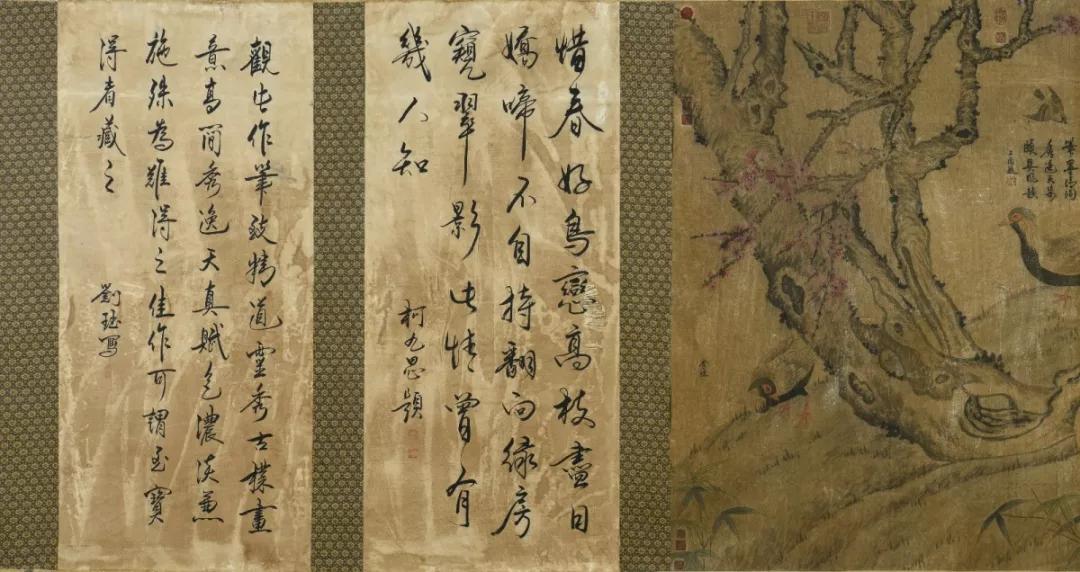 惜春好鳥戀高枝盡日
嬌啼不自持翻向綠房
窺翠影此情曾有
幾人知
柯九思題
觀此作筆致精遒靈秀古樸畫
意高間秀逸天真賦色濃淡兼
施殊為難得之佳作可謂至寶
得者藏之
劉珏寫